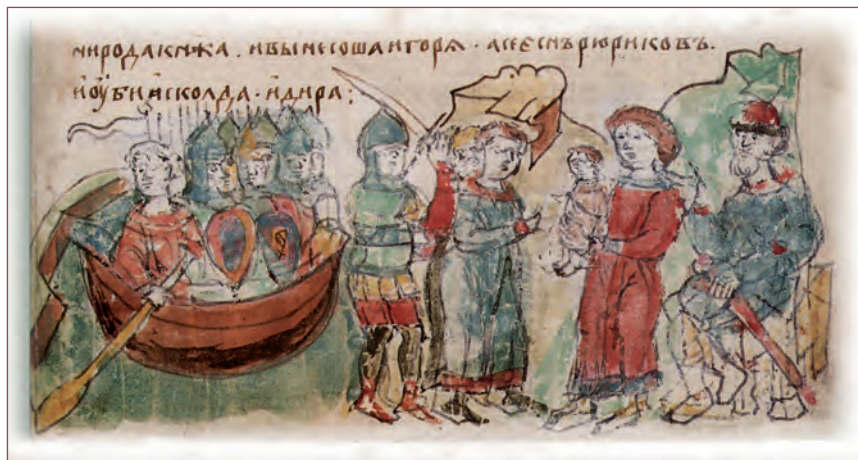 ни рода кнѧжа . и вынесоша игорѧ . а се есть снъ рюриковъ .
и оуби асколда . и дира :